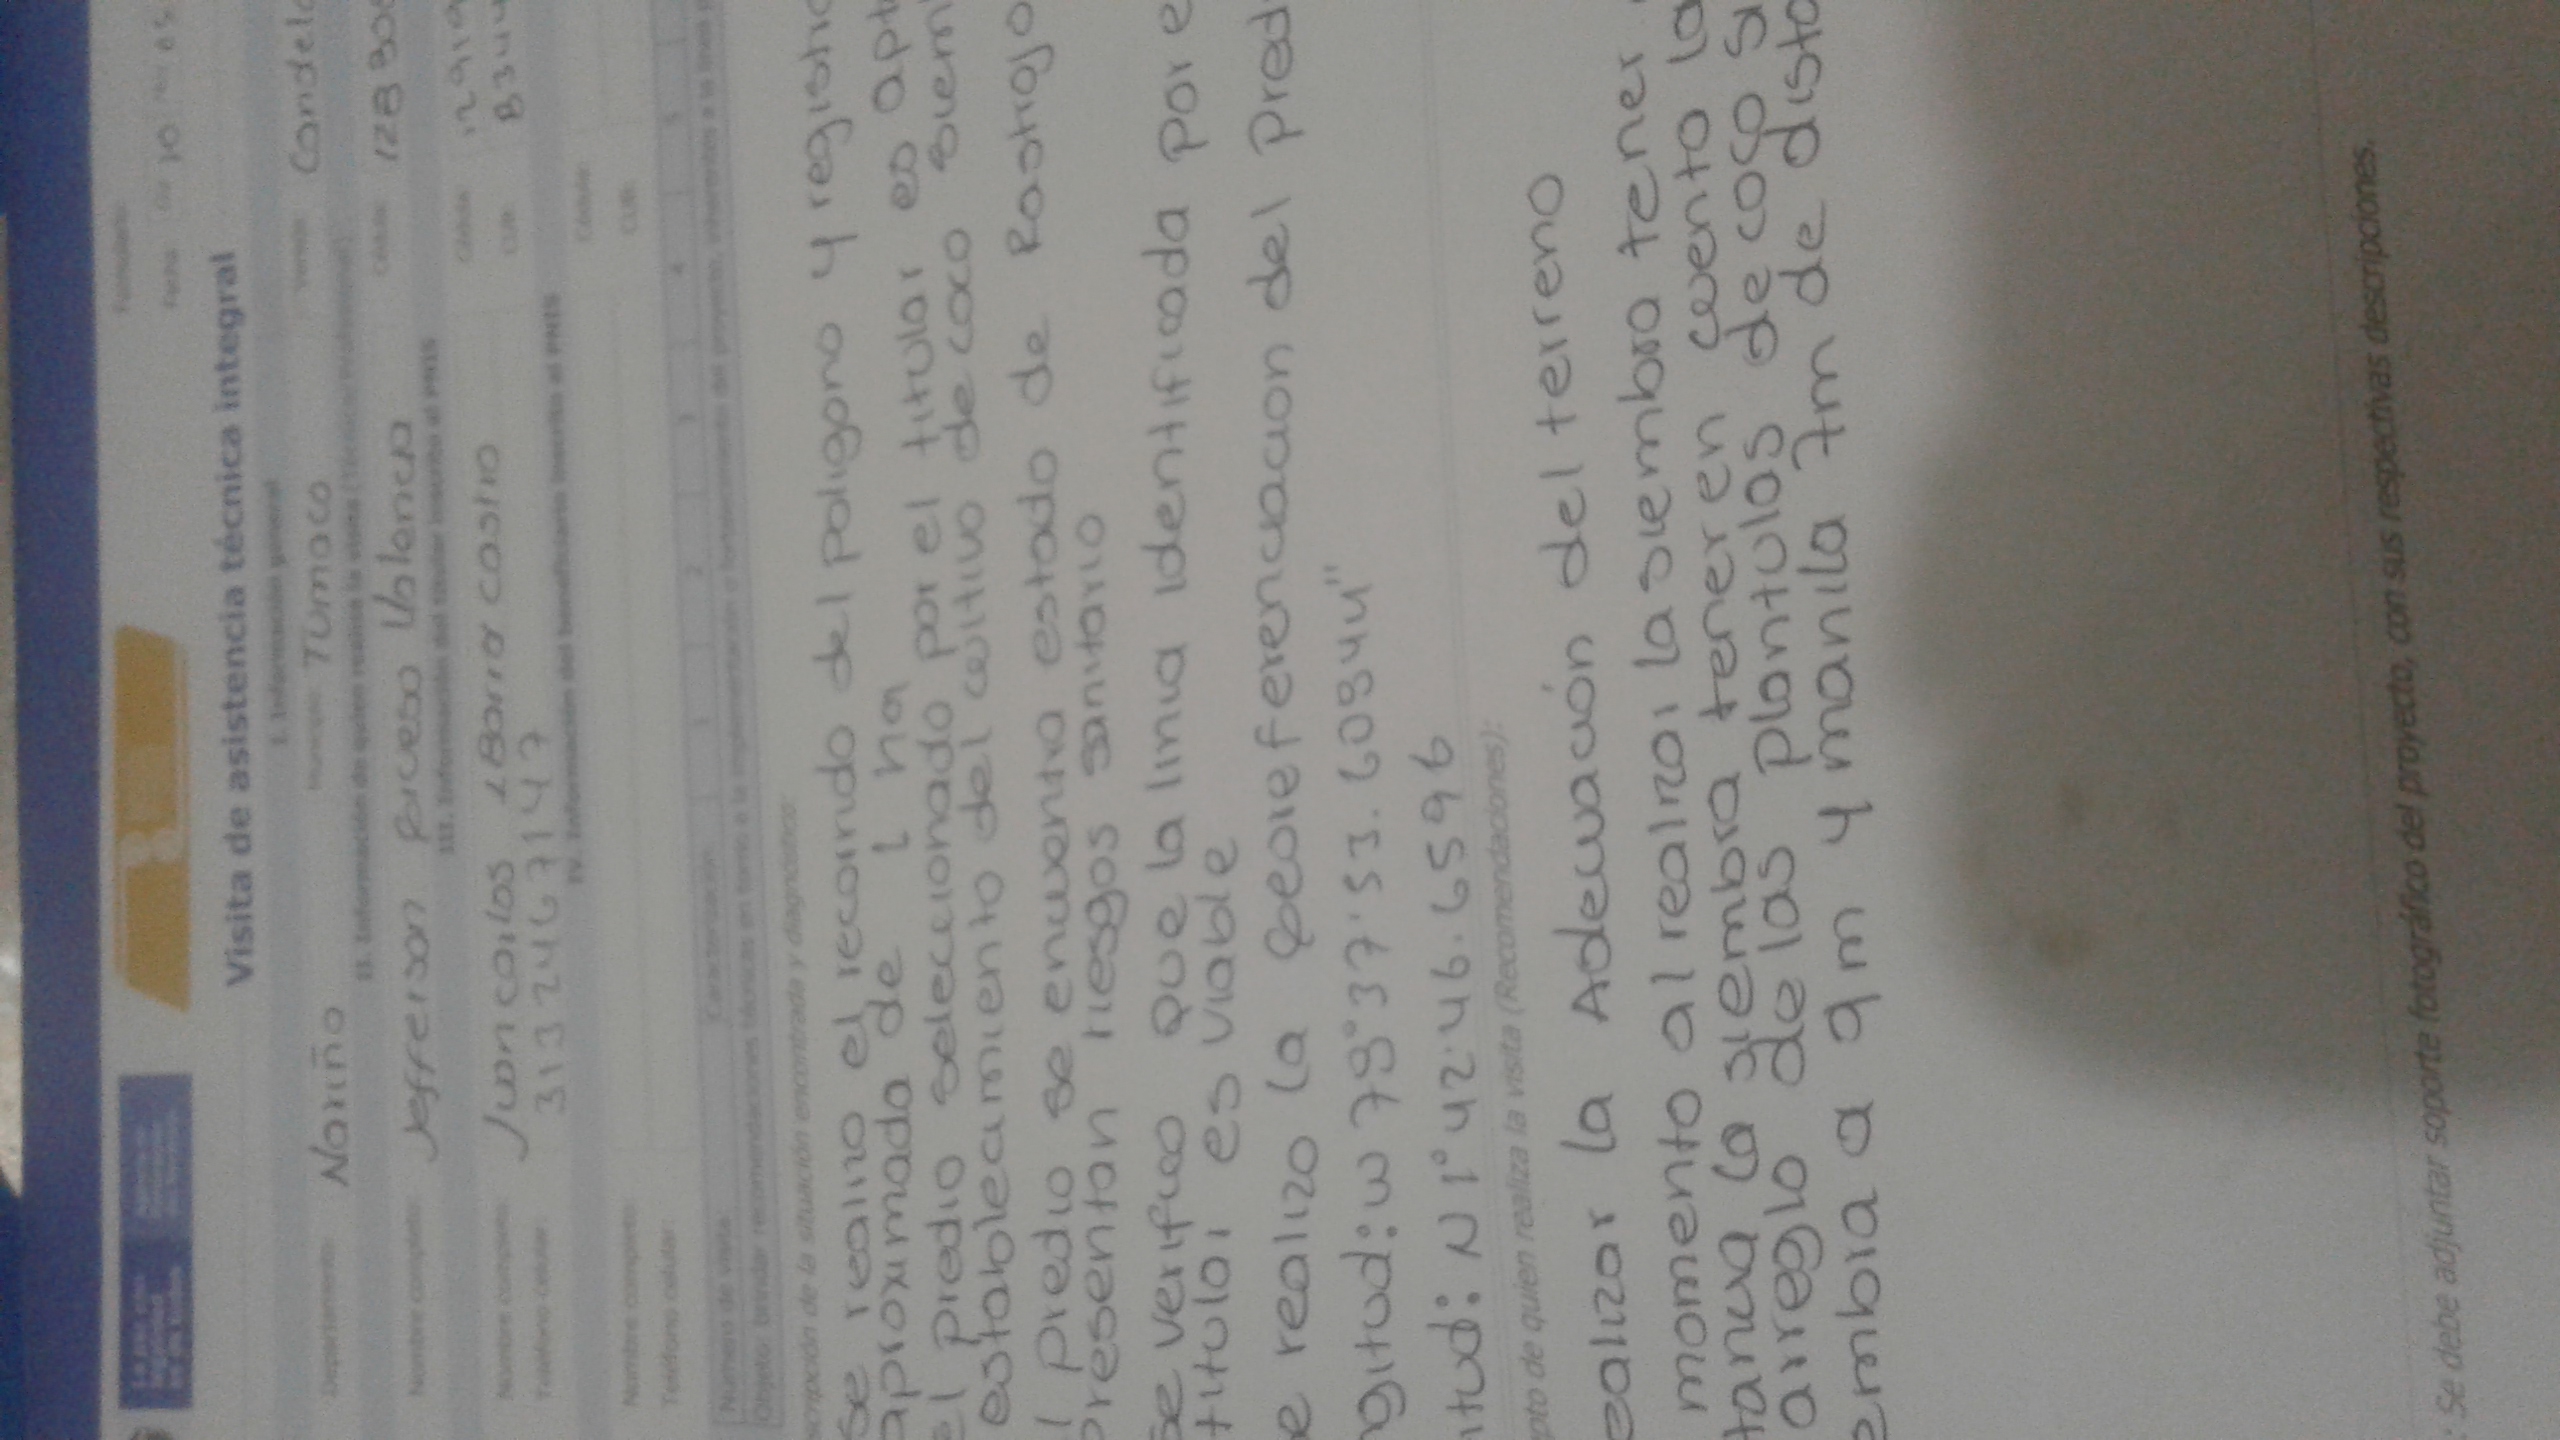 Formulario:
Fecha: 10 05
Visita de asistencia técnica integral
I. Información general
Departamento: Nariño Municipio: Tumaco Vereda: Candel
II. Información de quien realiza la visita (Técnico/Profesional)
Nombre completo: Jefferson Cédula: 128
III. Información del titular inscrito al PNIS
Nombre completo: Juan carlos Cédula: 12919
Teléfono celular: 3132467147 CUB: 8344
IV. Información del beneficiario inscrito al PNIS
Nombre completo: Cédula:
Teléfono celular: CUB:
Número de visita: Caracterización: 1 2 3 4 5
Objeto: brindar recomendaciones técnicas en torno a la implementación o fortalecimiento del proyecto,
scripción de la situación encontrada y diagnóstico:
se realizo el recorrido del poligono y registro
aproximado de 1 ha
el predio seleccionado por el titular es apt
establecimiento del cultivo de coco siem
l predio se encuentra estado de Rastrojo
presentan riesgos sanitario
Se verifico que la linia identificada por e
titular es viable
e realizo la georeferenciacion del pred
ngitud: W 78°37'53.60844"
itud: N 1°42'46.6596
pto de quien realiza la visita (Recomendaciones):
ealizar la Adecuación del terreno
momento al realizar la siembra tener
tancia la siembra tener en cuenta la
arreglo de las plantulas de coco si
embra a 9m y manila 7m de dista
: Se debe adjuntar soporte fotográfico del proyecto, con sus respectivas descripciones.